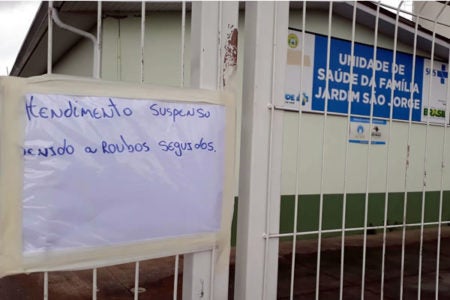 Atendimento suspenso
devido a roubos seguidos.
UNIDADE DE
SAÚDE DA FAMÍLIA
JARDIM SÃO JORGE
SUS
BRASIL